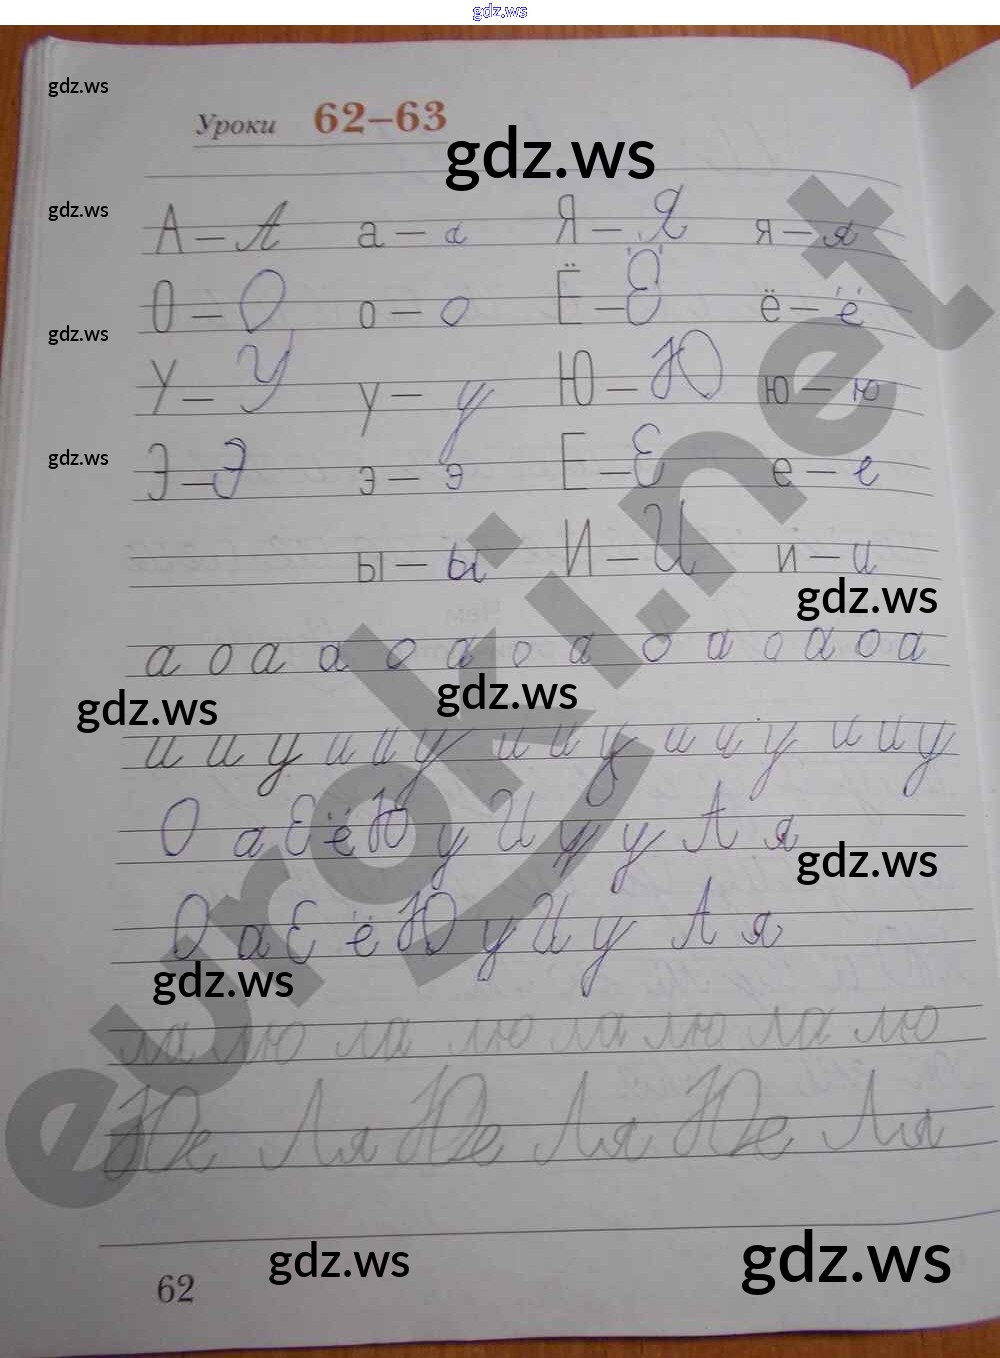 gdz.ws
gdz.ws
Уроки 62–63
gdz.ws
gdz.ws
А – А а – а Я – Я я – я
О – О о – о Ё – Ё ё – ё
gdz.ws
У – У у – у Ю – Ю ю – ю
gdz.ws
Э – Э э – э Е – Е е – е
ы – ы И – И и – и
gdz.ws
а о а а о а о а о а о а о а
gdz.ws
gdz.ws
и и у и и у и и у и и у и и у
О а Е ё Ю у И у у А я
gdz.ws
О а Е ё Ю у И у А я
gdz.ws
ла лю ла лю ла лю ла лю
Юе Ля Юе Ля Юе Ля
gdz.ws
gdz.ws
62
euroki.net